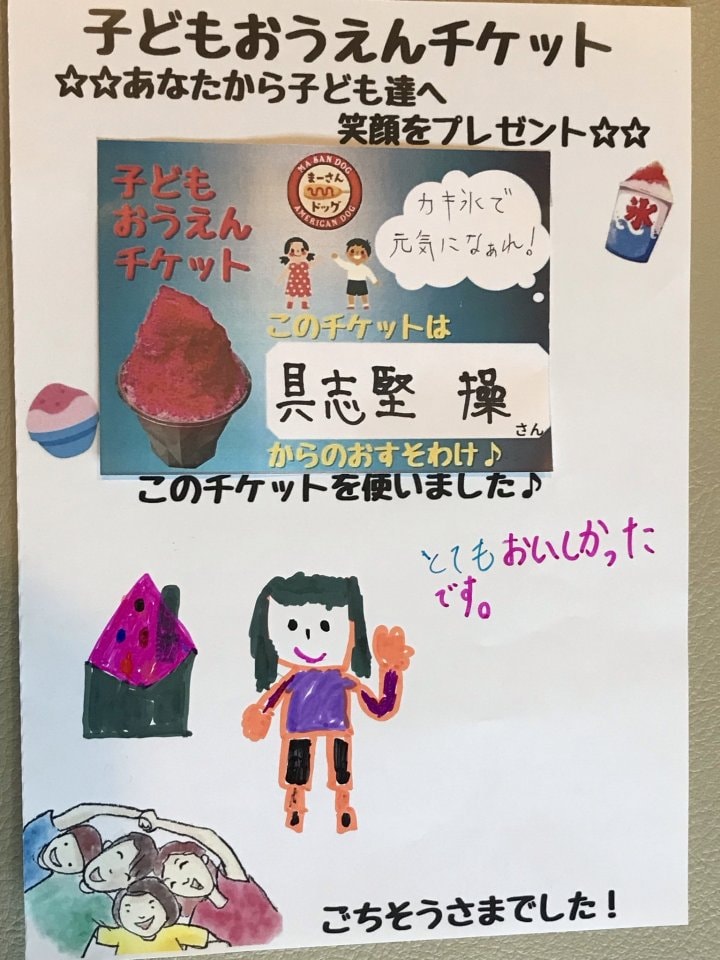 子どもおうえんチケット
☆☆あなたから子ども達へ
笑顔をプレゼント☆☆
子ども
おうえん
チケット
MA SAN DOG
まーさん
ドッグ
AMERICAN DOG
カキ氷で
元気になぁれ!
氷
このチケットは
具志堅 操
さん
からのおすそわけ♪
このチケットを使いました♪
とてもおいしかった
です。
ごちそうさまでした!